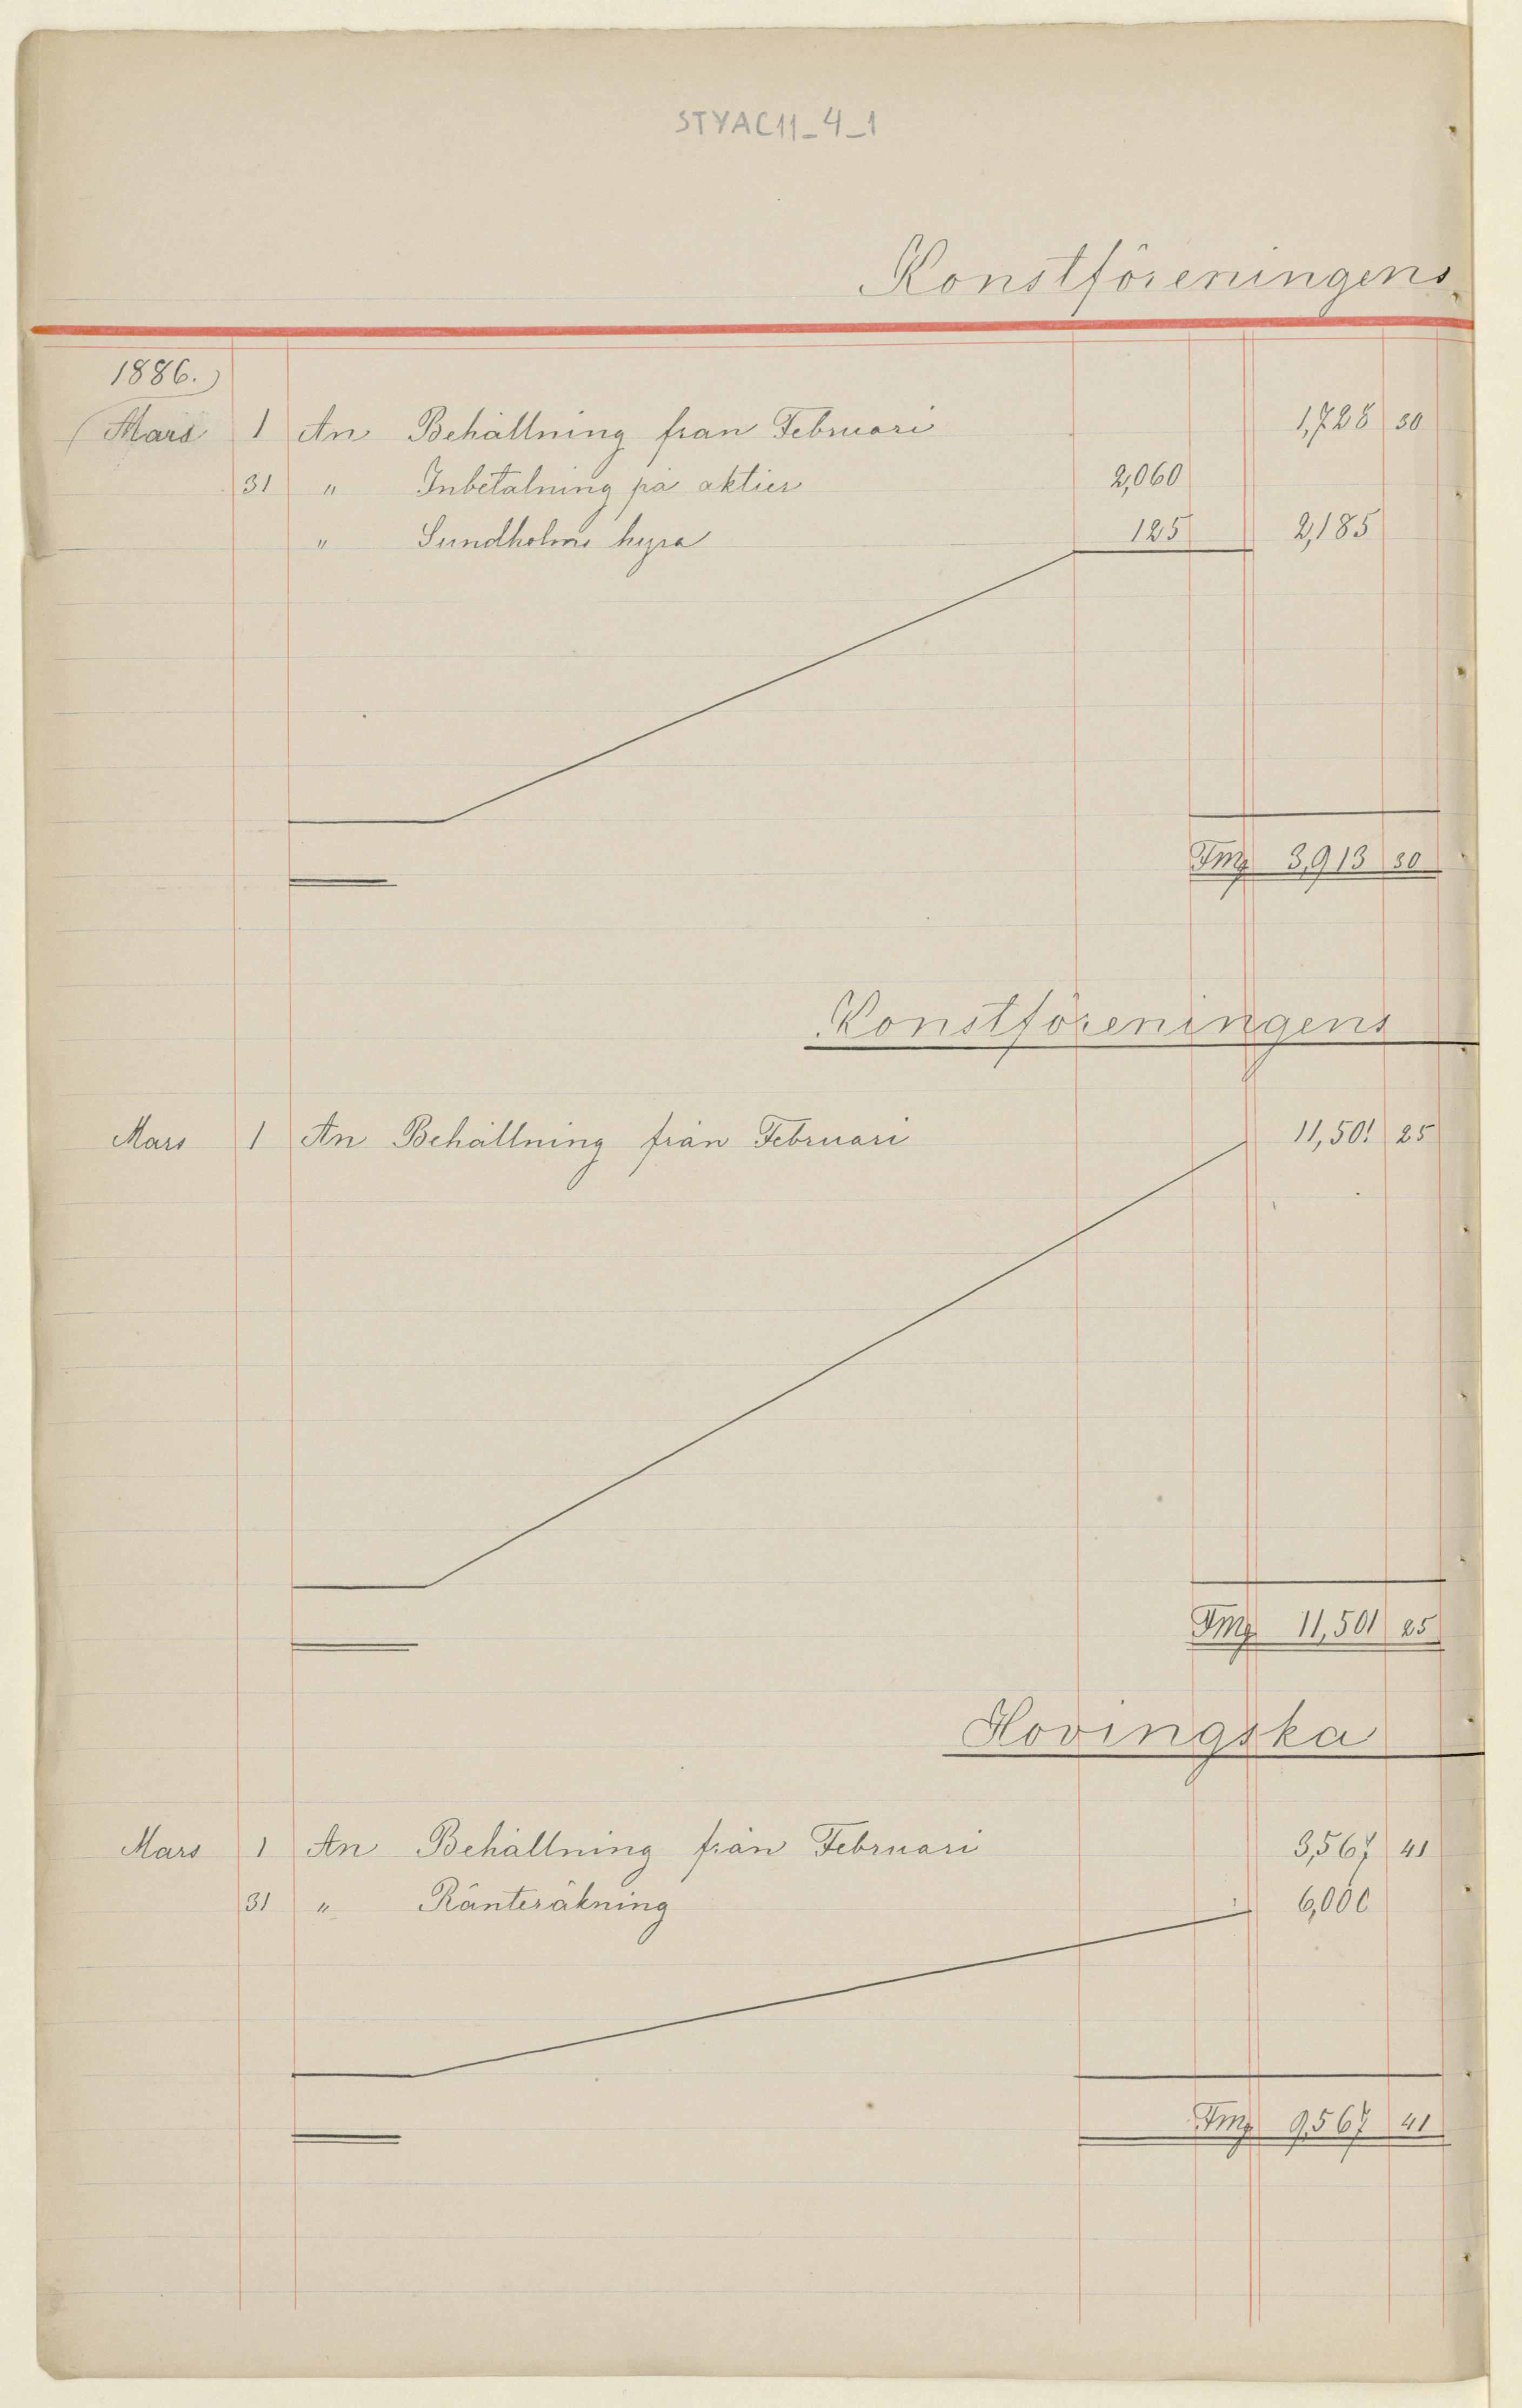 STYAC11_4_1
Konstföreningens
1886.
Mars 1 An Behållning från Februari 1,728 30
31 " Inbetalning på aktier 2,060
" Sundholms hyra 125 2,185
Fmg 3,913 30
Konstföreningens
Mars 1 An Behållning från Februari 11,501 25
Fmg 11,501 25
Hovingska
Mars 1 An Behållning från Februari 3,567 41
31 " Ränteräkning 6,000
Fmg 9,567 41